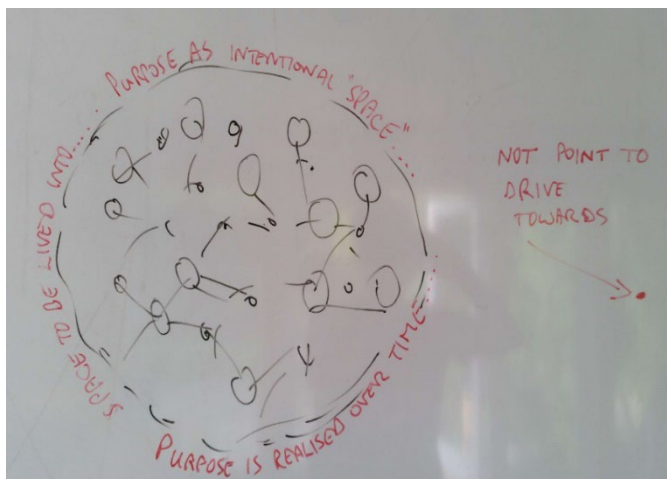 PURPOSE AS INTENTIONAL "SPACE"....
SPACE TO BE LIVED INTO.....
PURPOSE IS REALISED OVER TIME.....
NOT POINT TO
DRIVE
TOWARDS